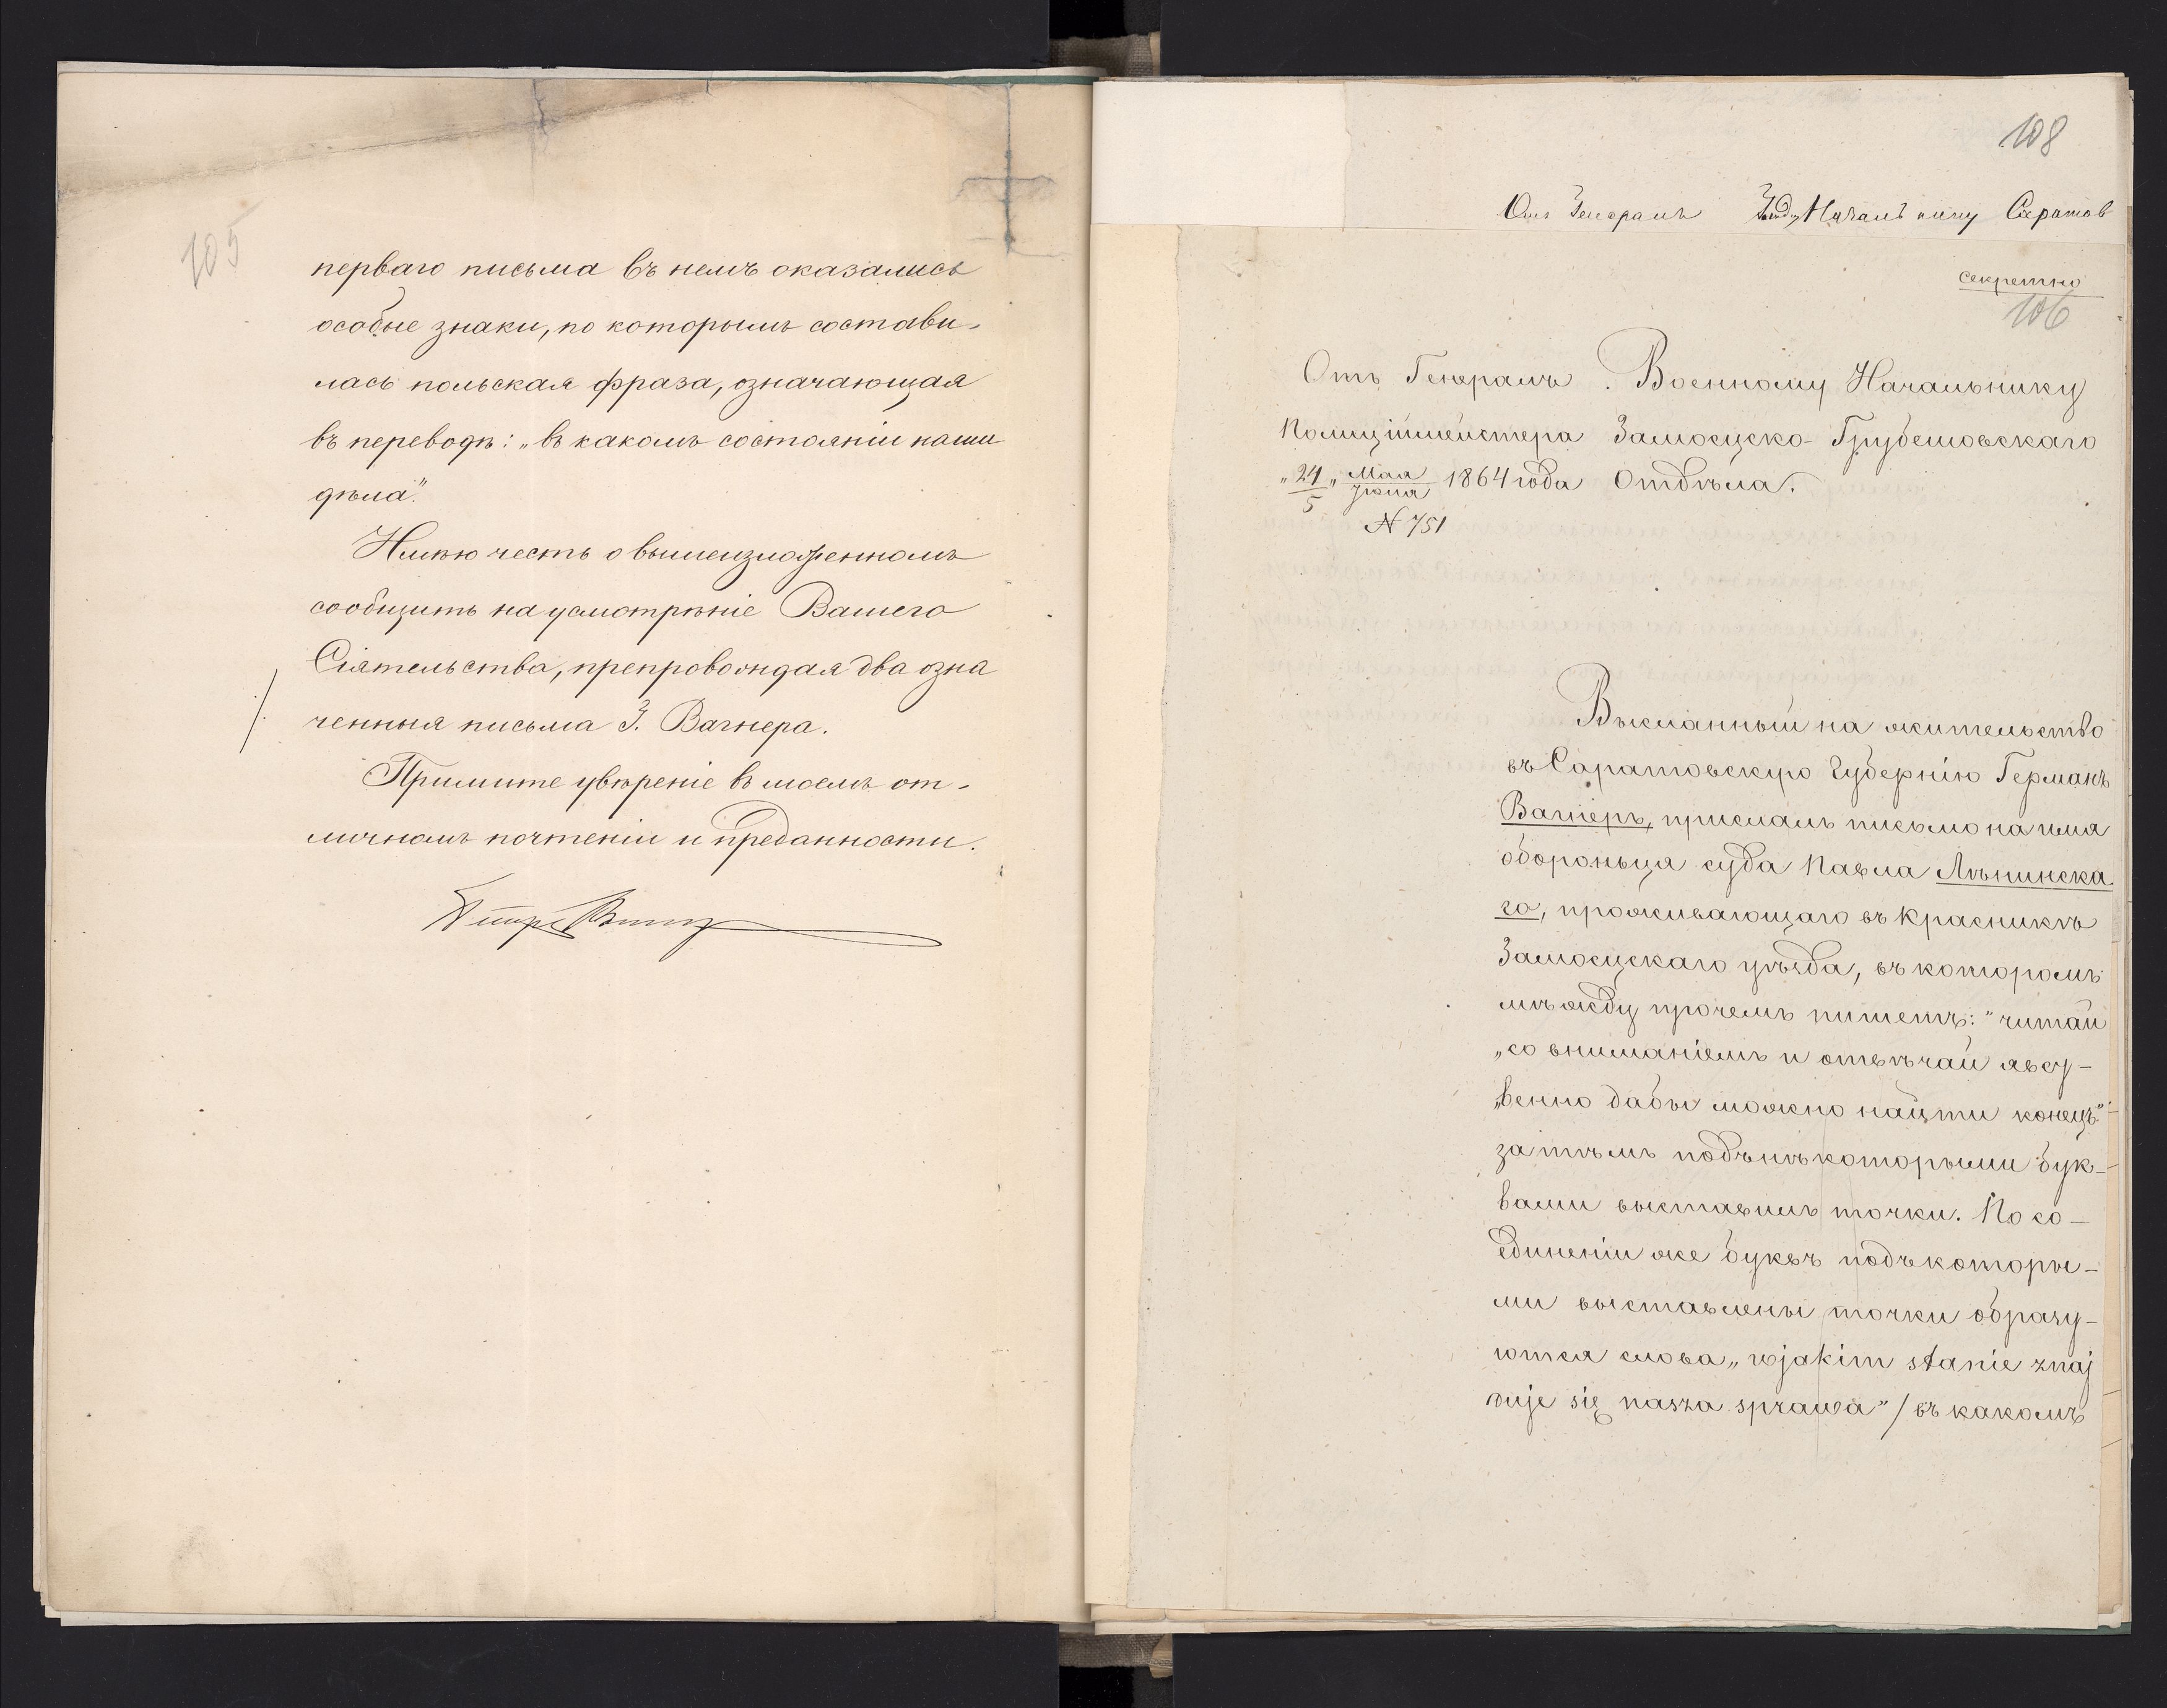 105
перваго письма въ немъ оказались
особые знаки, по которымъ состави-
лась польская фраза, означающая
въ переводѣ: „въ какомъ состояніи наши
дѣла".
Имѣю честь о вышеизложенномъ
сообщить на усмотрѣніе Вашего
Сіятельства, препровождая два озна
ченныя письма Г. Вагнера.
Примите увѣреніе въ моемъ от-
личномъ почтеніи и преданности.
108
Отъ Генералъ Началънику Саратов
секретно
106
Отъ Генералъ Военному Начальнику
Полиціймейстера Замосцско-Грубешовскаго
„24/5„ Мая/Іюня 1864 года Отдѣла.
N 751
Высланный на жительство
въ Саратовскую Губернію Германъ
Вагнеръ, прислалъ письмо на имя
обороньца суда Павла Лѣнинска
го, проживающаго въ Красникѣ
Замосцскаго уѣзда, въ которомъ
мѣжду прочемъ пишетъ: "читай
„со вниманіемъ и отвѣчай явст-
„венно дабы можно найти конецъ"
затѣмъ подънѣкоторыми бук-
вами выставилъ точки. По со-
единеніи же буквъ подъкоторы-
ми выставлены точки образу-
ются слова „wjakim stanie znaj
duje się nasza sprawa" / въ какомъ